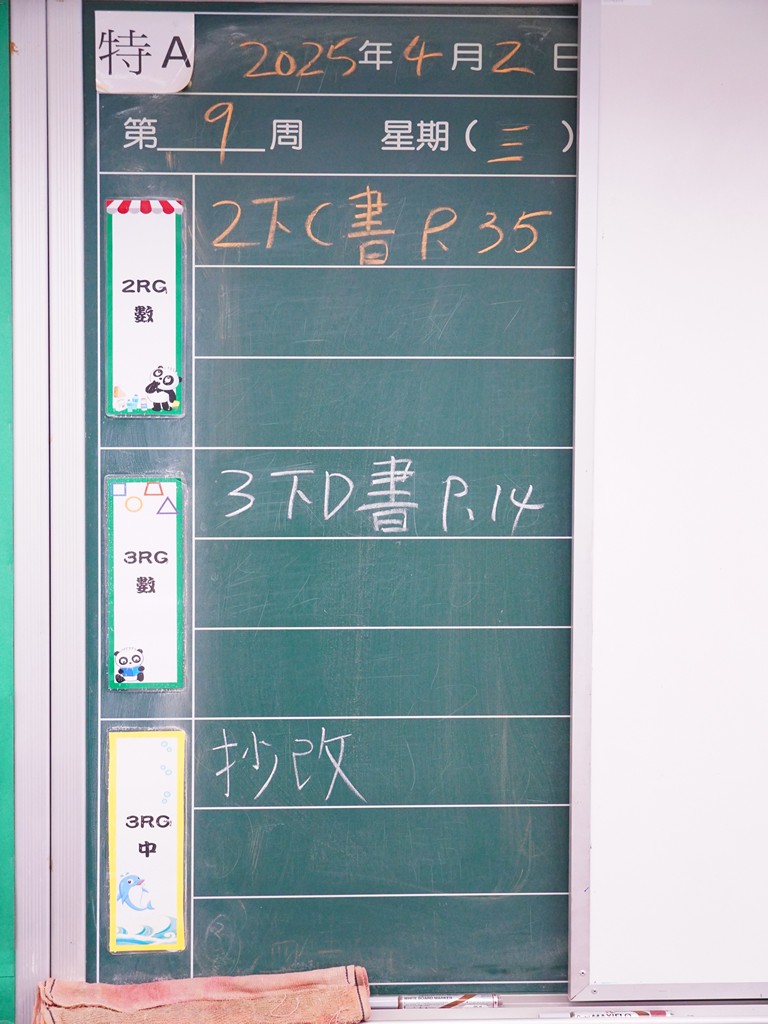 特A
2025年4月2日
第9周 星期(三)
2RG
數
2下C書 P.35
3RG
數
3下D書 P.14
3RG
中
抄改
WHITE BOARD MARKER